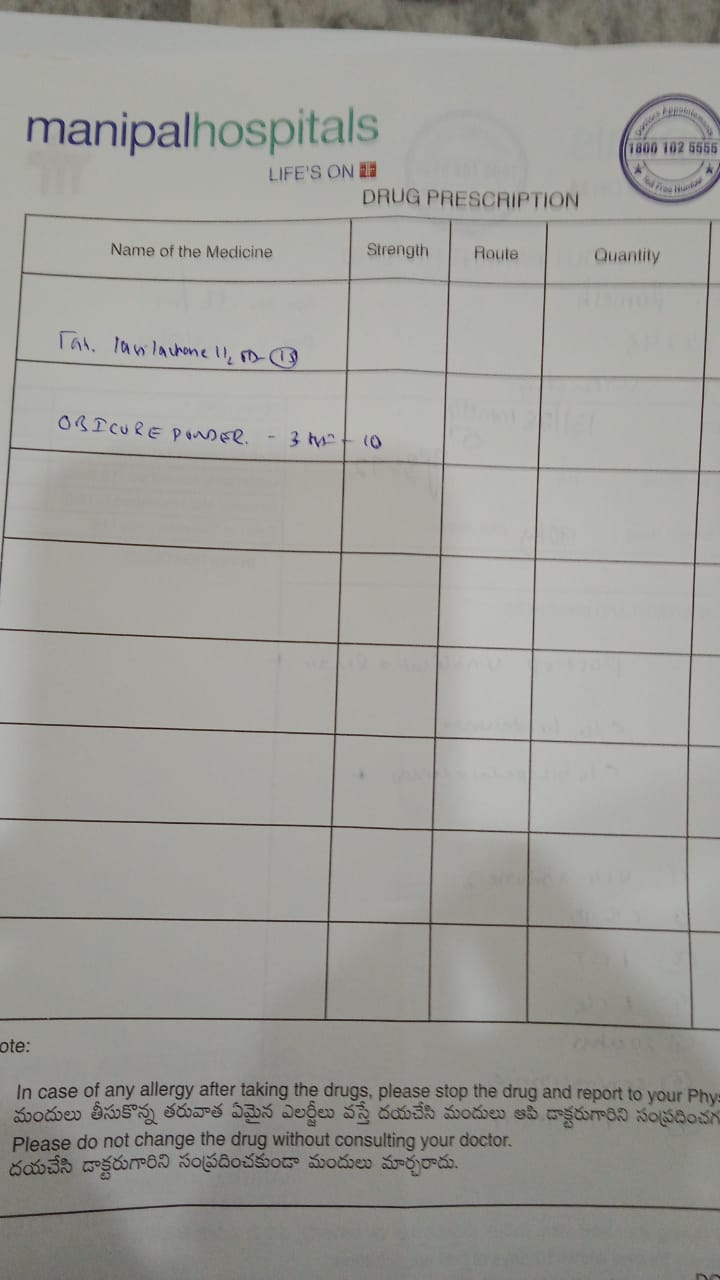 manipalhospitals
LIFE'S ON
Doctors Appointments
1800 102 5555
Toll Free Number
DRUG PRESCRIPTION
Name of the Medicine Strength Route Quantity
Tab. 1/2 OD 15
OBICURE POWDER. - 3 - 10
ote:
In case of any allergy after taking the drugs, please stop the drug and report to your Phys
మందులు తీసుకొన్న తరువాత ఏమైన ఎలర్జీలు వస్తే దయచేసి మందులు ఆపి డాక్టరుగారిని సంప్రదించగ
Please do not change the drug without consulting your doctor.
దయచేసి డాక్టరుగారిని సంప్రదించకుండా మందులు మార్చరాదు.